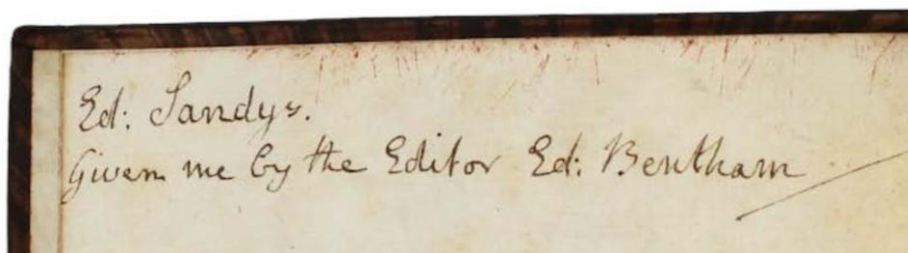 Ed: Sandys.
Given me by the Editor Ed: Bentham